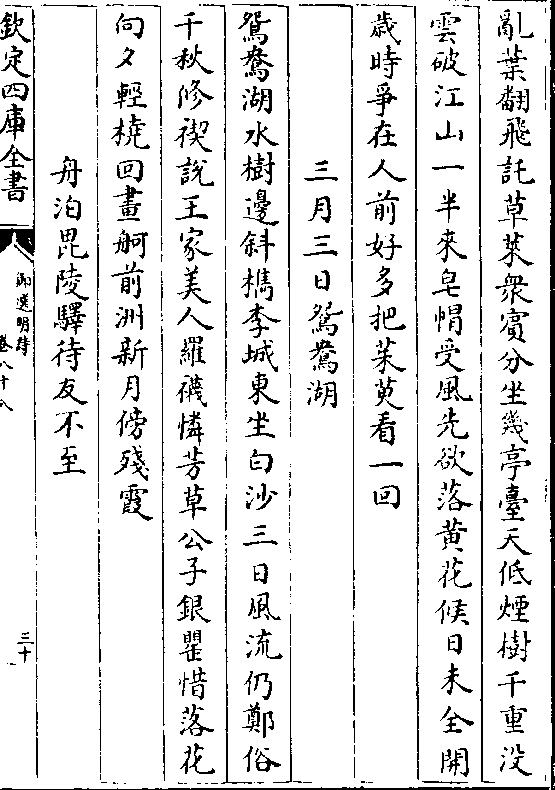 亂葉翻飛託草萊衆賓分坐幾亭臺天低煙樹千重没
雲破江山一半來皂帽受風先欲落黄花候日未全開
歲時爭在人前好多把茱萸看一回
三月三日鴛鴦湖
鴛鴦湖水樹邊斜檇李城東坐白沙三日風流仍鄭俗
千秋修禊說王家美人羅襪憐芳草公子銀罌惜落花
向夕輕橈回畫舸前洲新月傍殘霞
舟泊毘陵驛待友不至
欽定四庫全書
御選明詩
卷八十八
三十